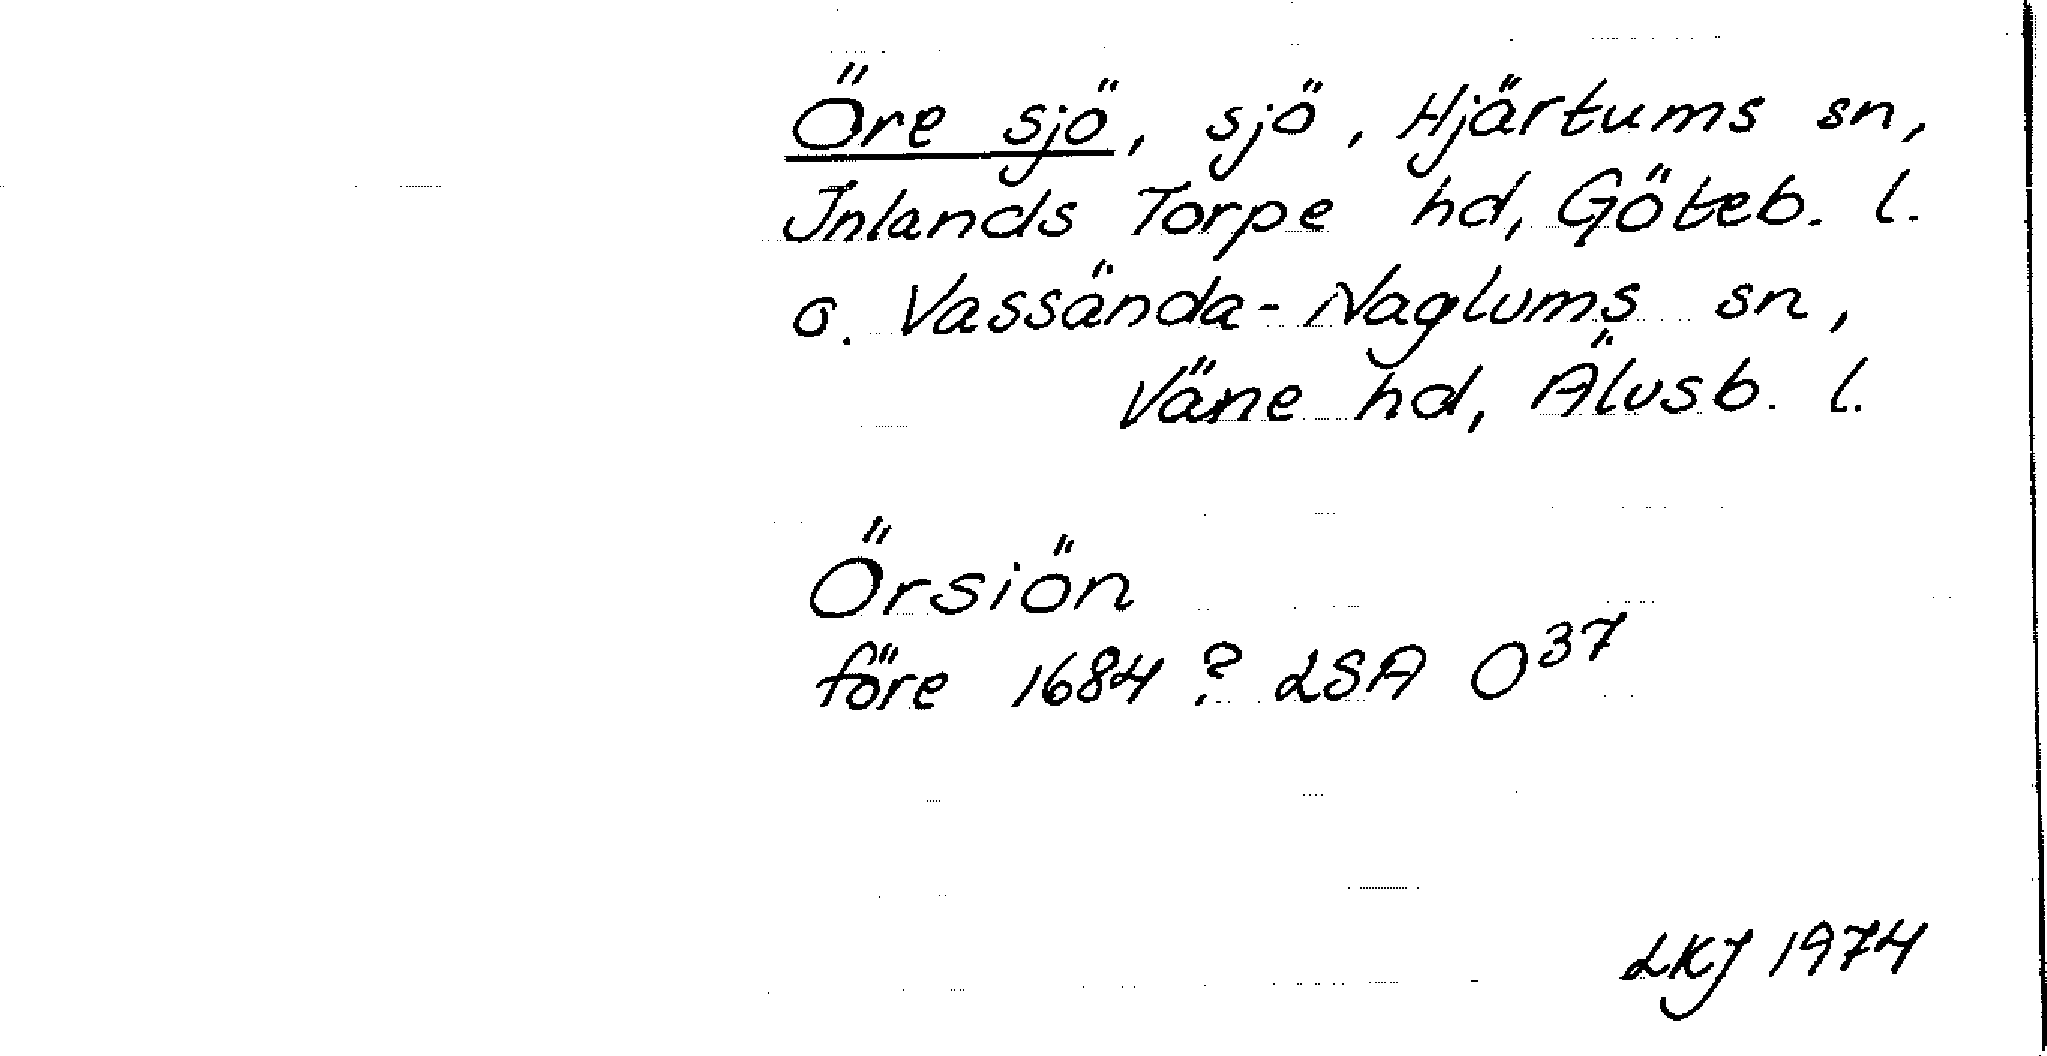 Öre sjö, sjö, Hjärtums sn,
Inlands Torpe hd, Göteb. l.
o. Vassända-Naglums sn,
Väne hd, Älvsb. l.
Örsiön
före 1684? LSA O³⁷
LKJ 1974